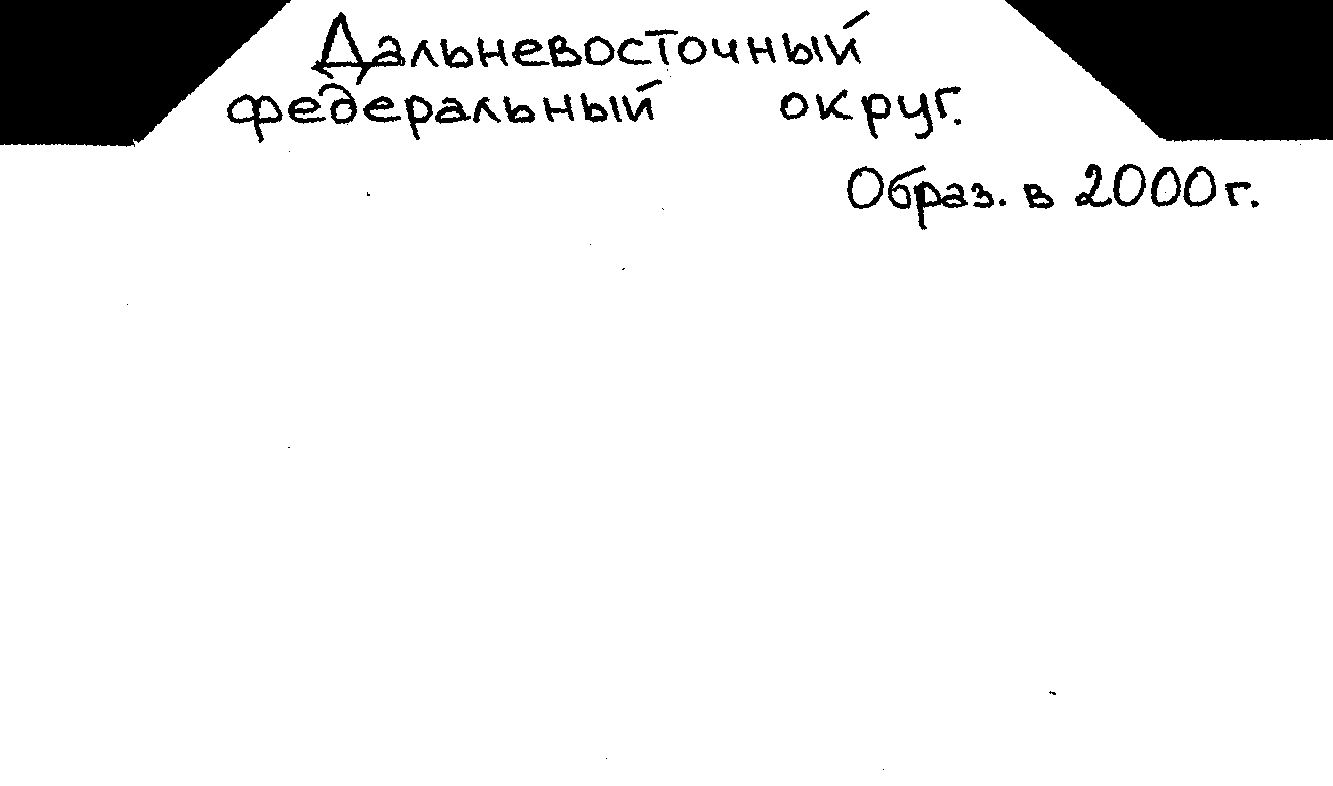 Дальневосточный
федеральный округ.
Образ. в 2000 г.